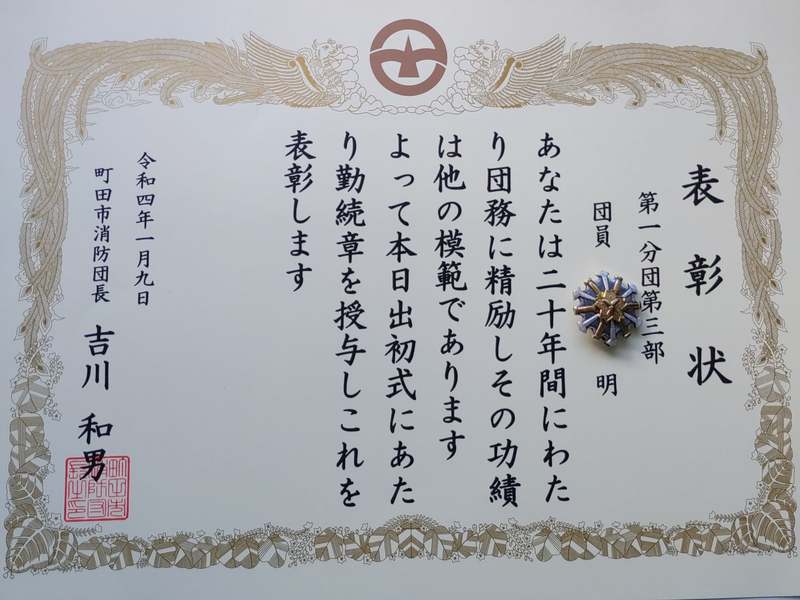 表彰状
第一分団第三部
団員 明
あなたは二十年間にわた
り団務に精励しその功績
は他の模範であります
よって本日出初式にあた
り勤続章を授与しこれを
表彰します
令和四年一月九日
町田市消防団長 吉川 和男